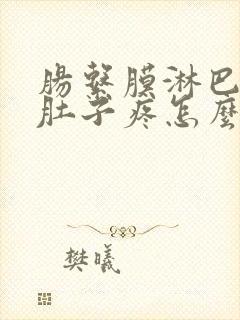 腸繫膜淋巴
肚子疼怎麼
樊曦